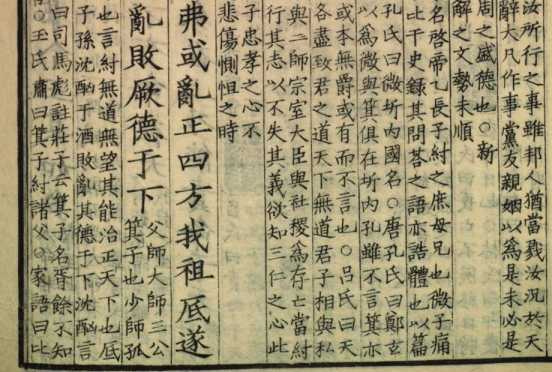 汝所行之事雖邦人猶當戮汝況於天
辭大凡作事黨友親姻以爲是未必是
周之盛德也○新
解之文勢未順
名啓帝乙長子紂之庶母兄也微子痛
比干史錄其問荅之語亦誥體也以篇
孔氏曰微圻内國名○唐孔氏曰鄭玄
以爲微與箕俱在圻内孔雖不言箕亦
或本無爵或有而不言也○呂氏曰天
各盡致君之道天下無道君子相與私
與二師宗室大臣與社稷爲存亡當紂
行其志以不失其義欲知三仁之心此
子忠孝之心不
悲傷惻怛之時
弗或亂正四方我祖厎遂
亂敗厥德于下
父師大師三公
箕子也少師孤
也言紂無道無望其能治正天下也厎
子孫沈酗于酒敗亂其德于下沈酗言
曰司馬彪註莊子云箕子名胥餘不知
○王氏肅曰箕子紂諸父○家語曰比